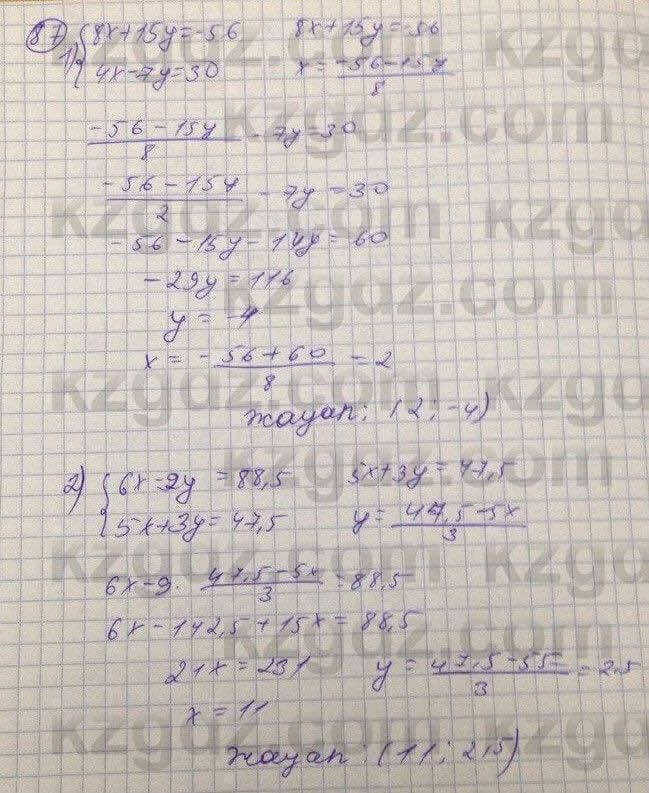 87
1) { 8x+15y=-56    8x+15y=-56
4x-7y=30    x = (-56-15y)/8
(-56-15y)/8 - 7y=30
(-56-15y)/2 - 7y=30
-56-15y-14y=60
-29y=116
y=-4
x = -(56+60)/8 = 2
Жауап: (2; -4)
2) { 6x-9y=88,5    5x+3y=47,5
5x+3y=47,5    y = (47,5-5x)/3
6x-9·(47,5-5x)/3=88,5
6x-142,5+15x=88,5
21x=231    y = (47,5-55)/3 = 2.5
x=11
Жауап: (11; 2,5)
kzgdz.com